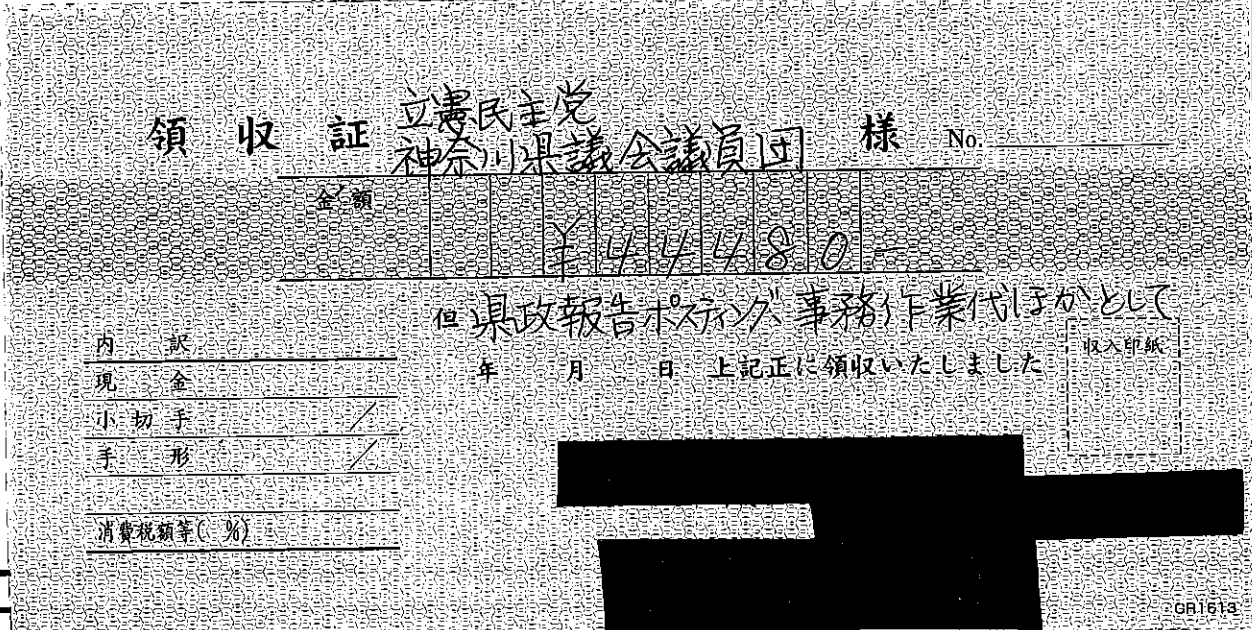 立憲民主党
領収証 神奈川県議会議員団 様 No.
金額 ¥44480-
但 県政報告ポスティング、事務作業代ほかとして
年 月 日 上記正に領収いたしました
収入印紙
内訳
現金
小切手
手形
消費税額等( %)
GR1613